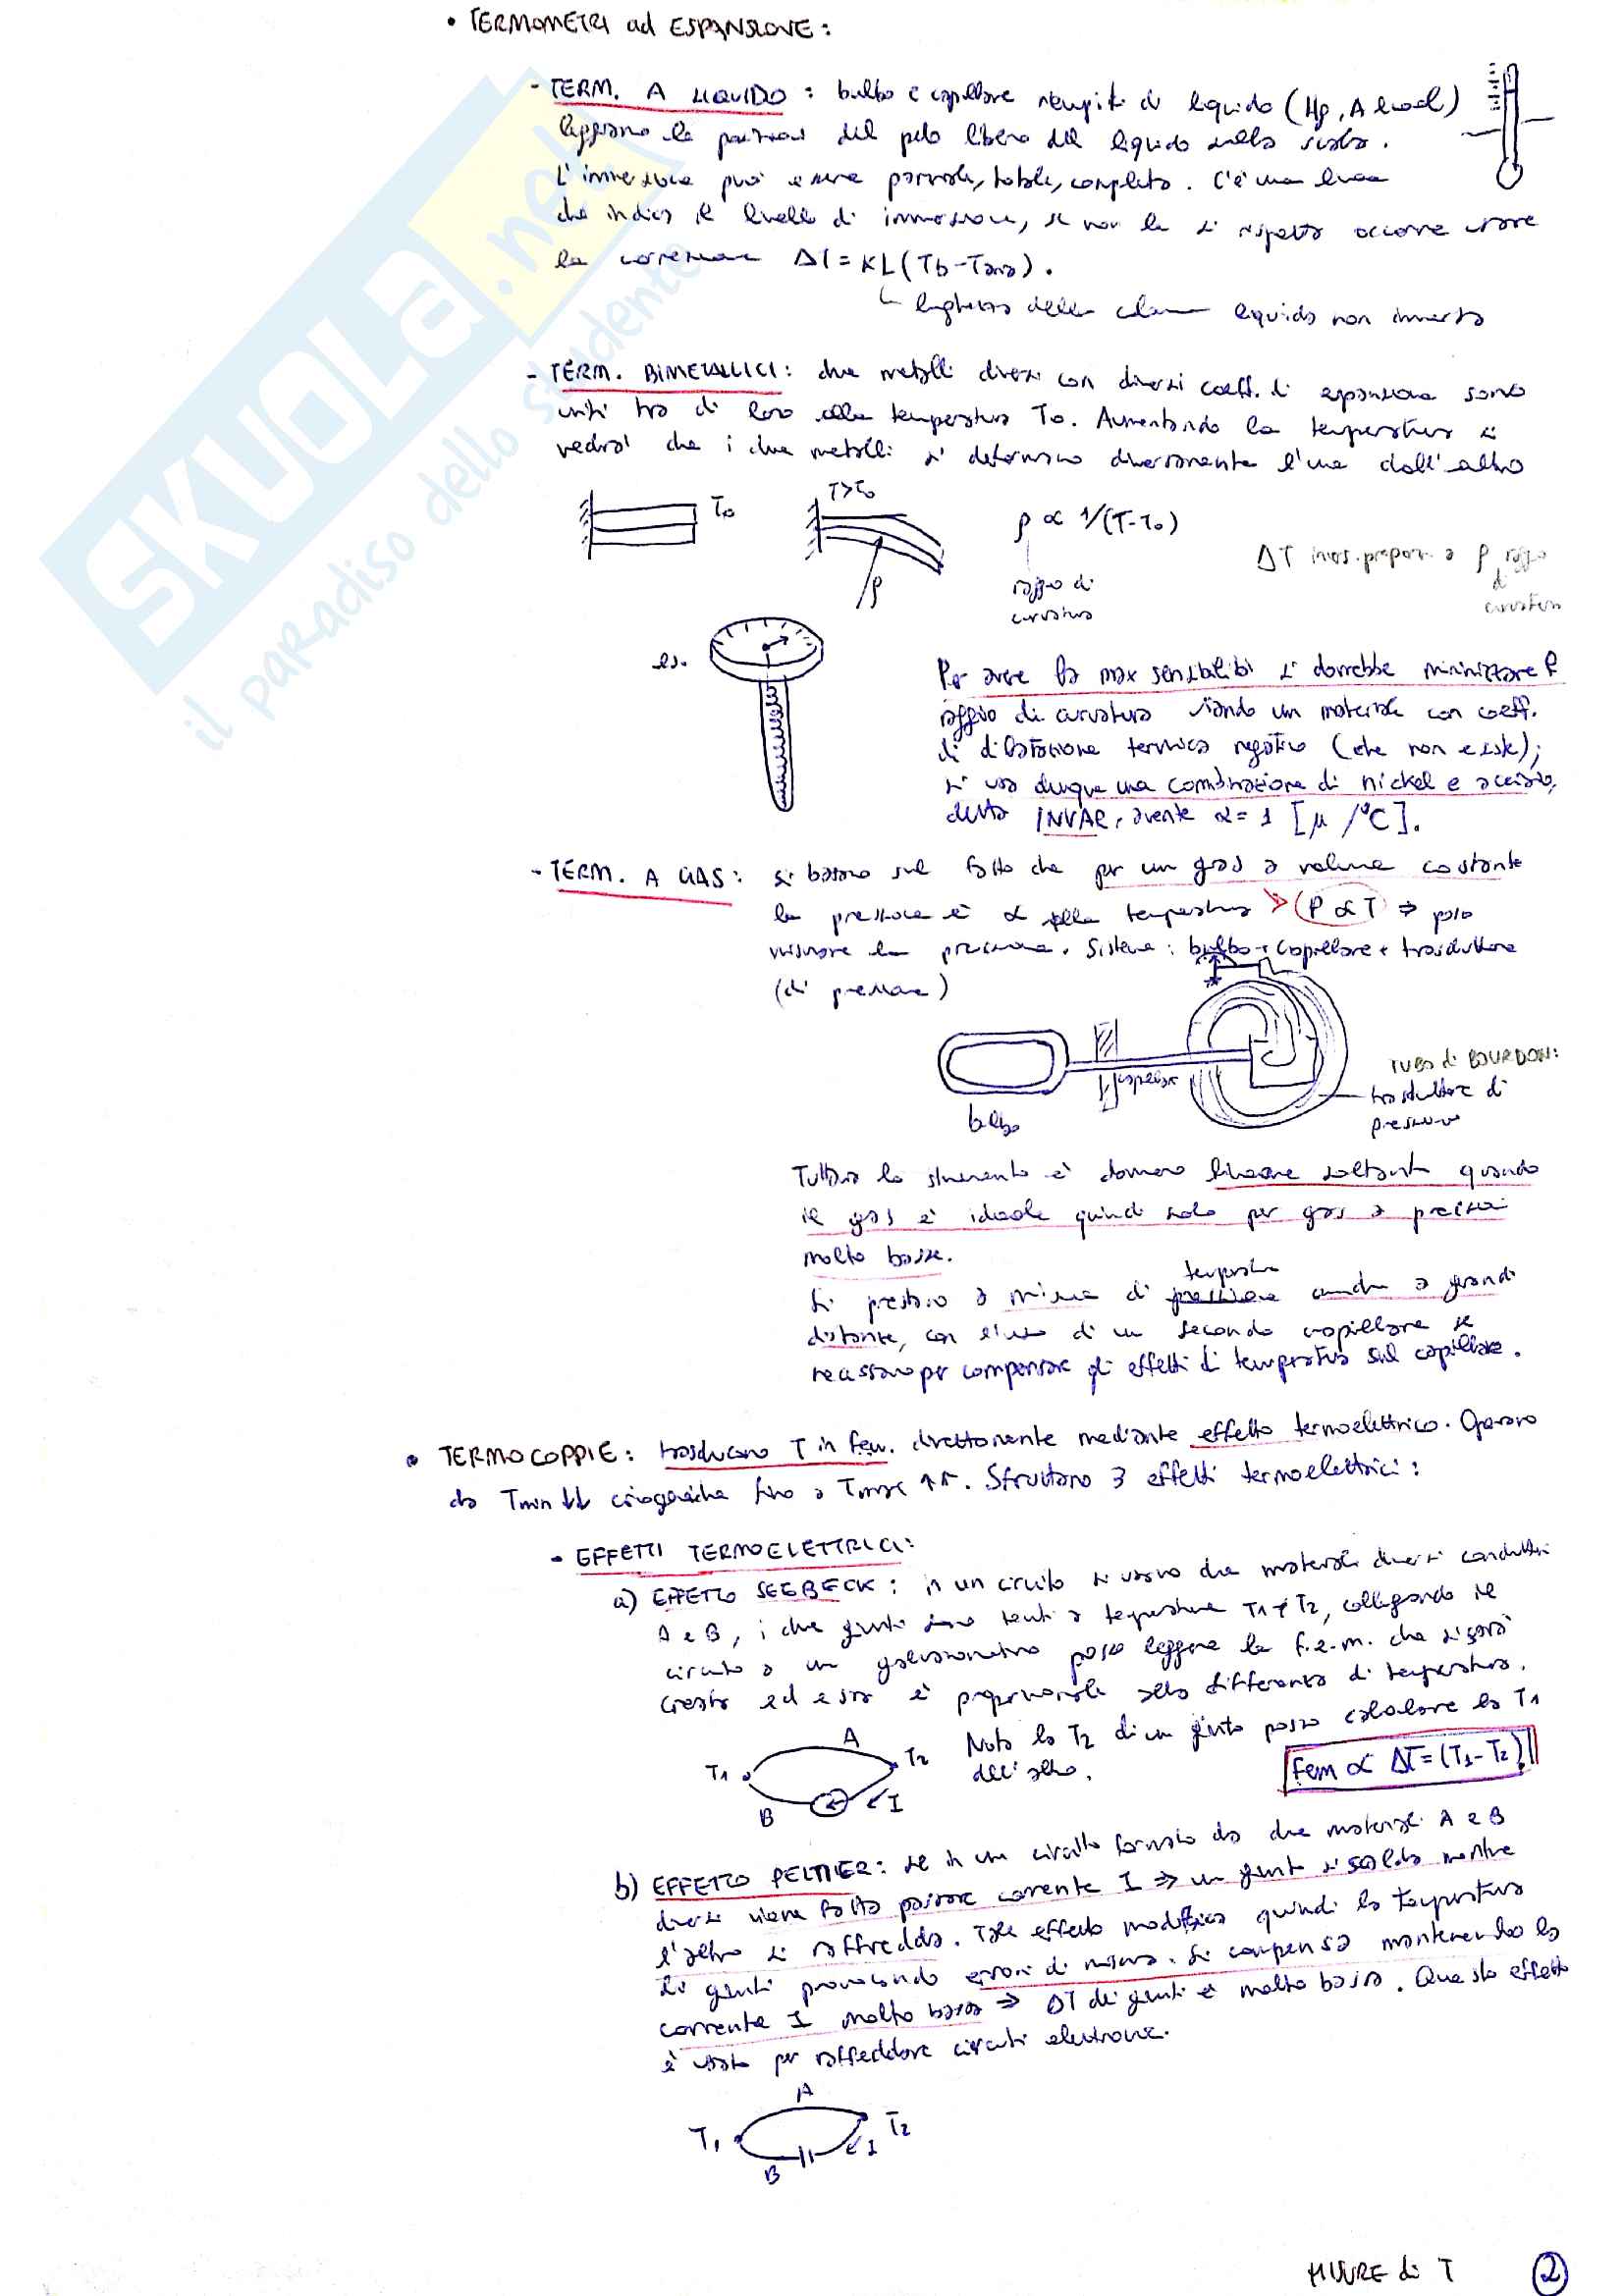 • TERMOMETRI ad ESPANSIONE:
- TERM. A LIQUIDO: bulbo e capillare riempiti di liquido (Hg, Alcool)
leggiamo la posizione del pelo libero del liquido sulla scala.
L'immersione può essere parziale, totale, completa. C'è una linea
che indica il livello di immersione, se non la si rispetta occorre usare
la correzione ΔT = KL(Tb-Tara).
lunghezza della colonna liquido non immerso
- TERM. BIMETALLICI: due metalli diversi con diversi coeff. di espansione sono
uniti tra di loro alla temperatura To. Aumentando la temperatura si
vedrà che i due metalli si deformano diversamente l'uno dall'altro
To
T>To
ρ
ρ ∝ 1/(T-To)
raggio di
curvatura
ΔT invers. propor. a ρ raggio
di
curvatura
es.
Per avere la max sensibilità si dovrebbe minimizzare ρ
raggio di curvatura usando un materiale con coeff.
di dilatazione termica negativo (che non esiste);
si usa dunque una combinazione di nickel e acciaio,
detta INVAR, avente α = 1 [μ/°C].
- TERM. A GAS: si basano sul fatto che per un gas a volume costante
la pressione è ∝ alla temperatura > (P ∝ T) ⇒ posso
misurare la pressione. Sistema: bulbo + capillare + trasduttore
(di pressione)
capillare
bulbo
TUBO di BOURDON:
trasduttore di
pressione
Tuttavia lo strumento è davvero lineare soltanto quando
il gas è ideale quindi solo per gas a pressioni
molto basse.
temperatura
Si prestano a misure di pressione anche a grandi
distanze, con l'uso di un secondo capillare se
necessario per compensare gli effetti di temperatura sul capillare.
• TERMOCOPPIE: trasducono T in fem. direttamente mediante effetto termoelettrico. Operano
da Tmin ↓↓ criogeniche fino a Tmax ↑↑. Sfruttano 3 effetti termoelettrici:
- EFFETTI TERMOELETTRICI:
a) EFFETTO SEEBECK: in un circuito si usano due materiali diversi conduttori
A e B, i due giunti sono tenuti a temperature T1 ≠ T2, collegando il
circuito a un galvanometro posso leggere la f.e.m. che si sarà
creata ed essa è proporzionale alla differenza di temperatura.
Nota la T2 di un giunto posso calcolare la T1
dell'altro.
Fem ∝ ΔT = (T1-T2)!
T1
A
T2
B
I
b) EFFETTO PELTIER: se in un circuito formato da due materiali A e B
diversi viene fatta passare corrente I ⇒ un giunto si scalda mentre
l'altro si raffredda. Tale effetto modifica quindi la temperatura
di giunti provocando errori di misura. Si compensa mantenendo la
corrente I molto bassa ⇒ ΔT dei giunti è molto bassa. Questo effetto
è usato per raffreddare circuiti elettronici.
A
T1
T2
B
I
MISURE di T
2
SKUOLA.net
il paradiso dello studente